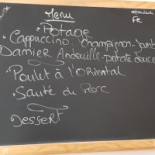 Menu
Potage
- Cappuccino champignon-jambon
Damier Andouille-patate douce
- Poulet à l'Oriental
- Sauté de Porc
Dessert